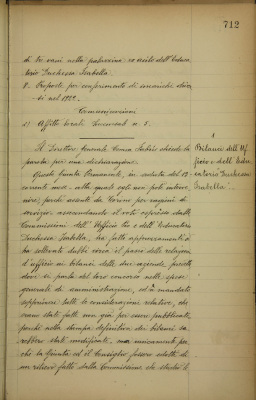 712
di tre vani nella palazzina ex asilo dell'Educa
torio Duchessa Isabella.
8. Proposte per conferimento di onorari
si nel 1922.
Comunicazioni
a) Affitto locali n. 5.
Il Direttore Generale Comm. chiede la
parola per una dichiarazione.
Questa Giunta Permanente, in seduta del 12
corrente mese, alla quale egli non poté interve
nire, perché assente da Torino per ragioni di
servizio, assecondando il voto espresso dalle
Commissioni dell'Ufficio Pio e dell'Educatorio
Duchessa Isabella, ha fatto apprezzamenti e
ha sollevato dubbi circa il passo delle relazioni
d'ufficio ai bilanci delle due aziende, precetto
dove si parla del loro concorso nelle spese
generali di amministrazione, ed ha mandato
sopprimersi tutte le considerazioni relative, che
erano state fatte non già per essere pubblicate,
perché nella stampa definitiva dei bilanci sa
rebbero state modificate, ma unicamente per
che la Giunta ed il Consiglio fossero edotti di
un rilievo fatto dalla Commissione che studiò il
Bilanci dell'Uf
ficio e dell'Edu
catorio Duchessa
Isabella".